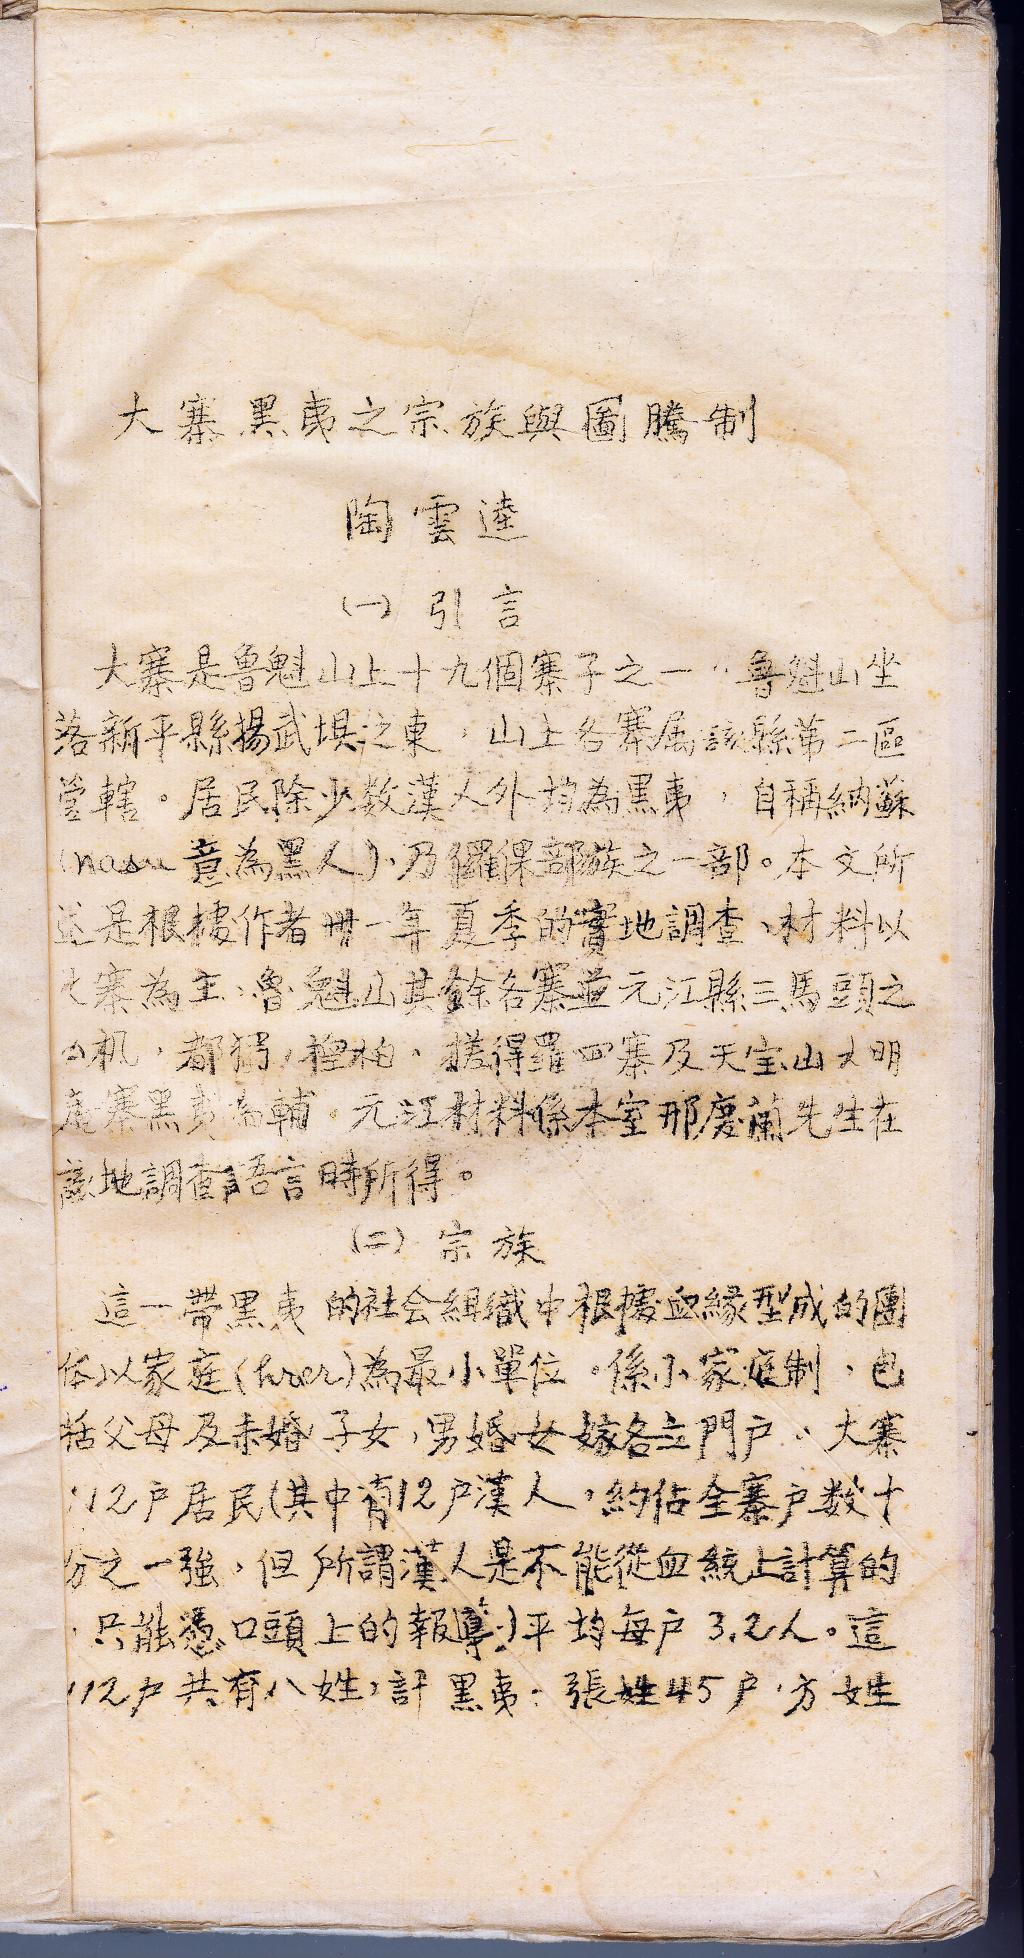 大寨黑夷之宗族與圖騰制
陶雲逵
(一) 引言
大寨是魯魁山上十九個寨子之一。魯魁山坐
落新平縣揚武壩之東，山上各寨属該縣第二區
管轄。居民除少数漢人外均為黑夷，自稱納蘇
(nasu 意為黑人)，乃儸倮部族之一部。本文所
述是根據作者卅一年夏季的實地調查、材料以
大寨為主，魯魁山其餘各寨並元江縣三馬頭之
机，都猬，控柏，搓得羅四寨及天宝山大明
庵寨黑夷為輔。元江材料係本室那慶蘭先生在
該地調查語言時所得。
(二) 宗族
這一帶黑夷的社会組織中根據血緣型成的團
体以家庭()為最小單位，係小家庭制，包
括父母及未婚子女，男婚女嫁各立門户。大寨
112户居民(其中有12户漢人，約佔全寨户数十
分之一強，但所謂漢人是不能從血統上計算的
，只能憑口頭上的報導)平均每户3.2人。這
112户共有八姓，計黑夷：張姓45户，方姓